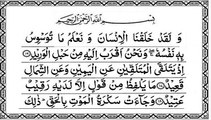 بِسْمِ اللّٰهِ الرَّحْمٰنِ الرَّحِيْمِ
وَ لَقَدْ خَلَقْنَا الْاِنْسَانَ وَ نَعْلَمُ مَا تُوَسْوِسُ
بِهٖ نَفْسُهٗ ۖ وَ نَحْنُ اَقْرَبُ اِلَيْهِ مِنْ حَبْلِ الْوَرِيْدِ
اِذْ يَتَلَقَّى الْمُتَلَقِّيٰنِ عَنِ الْيَمِيْنِ وَ عَنِ الشِّمَالِ
قَعِيْدٌ مَا يَلْفِظُ مِنْ قَوْلٍ اِلَّا لَدَيْهِ رَقِيْبٌ
عَتِيْدٌ وَ جَآءَتْ سَكْرَةُ الْمَوْتِ بِالْحَقِّ ؕ ذٰلِكَ